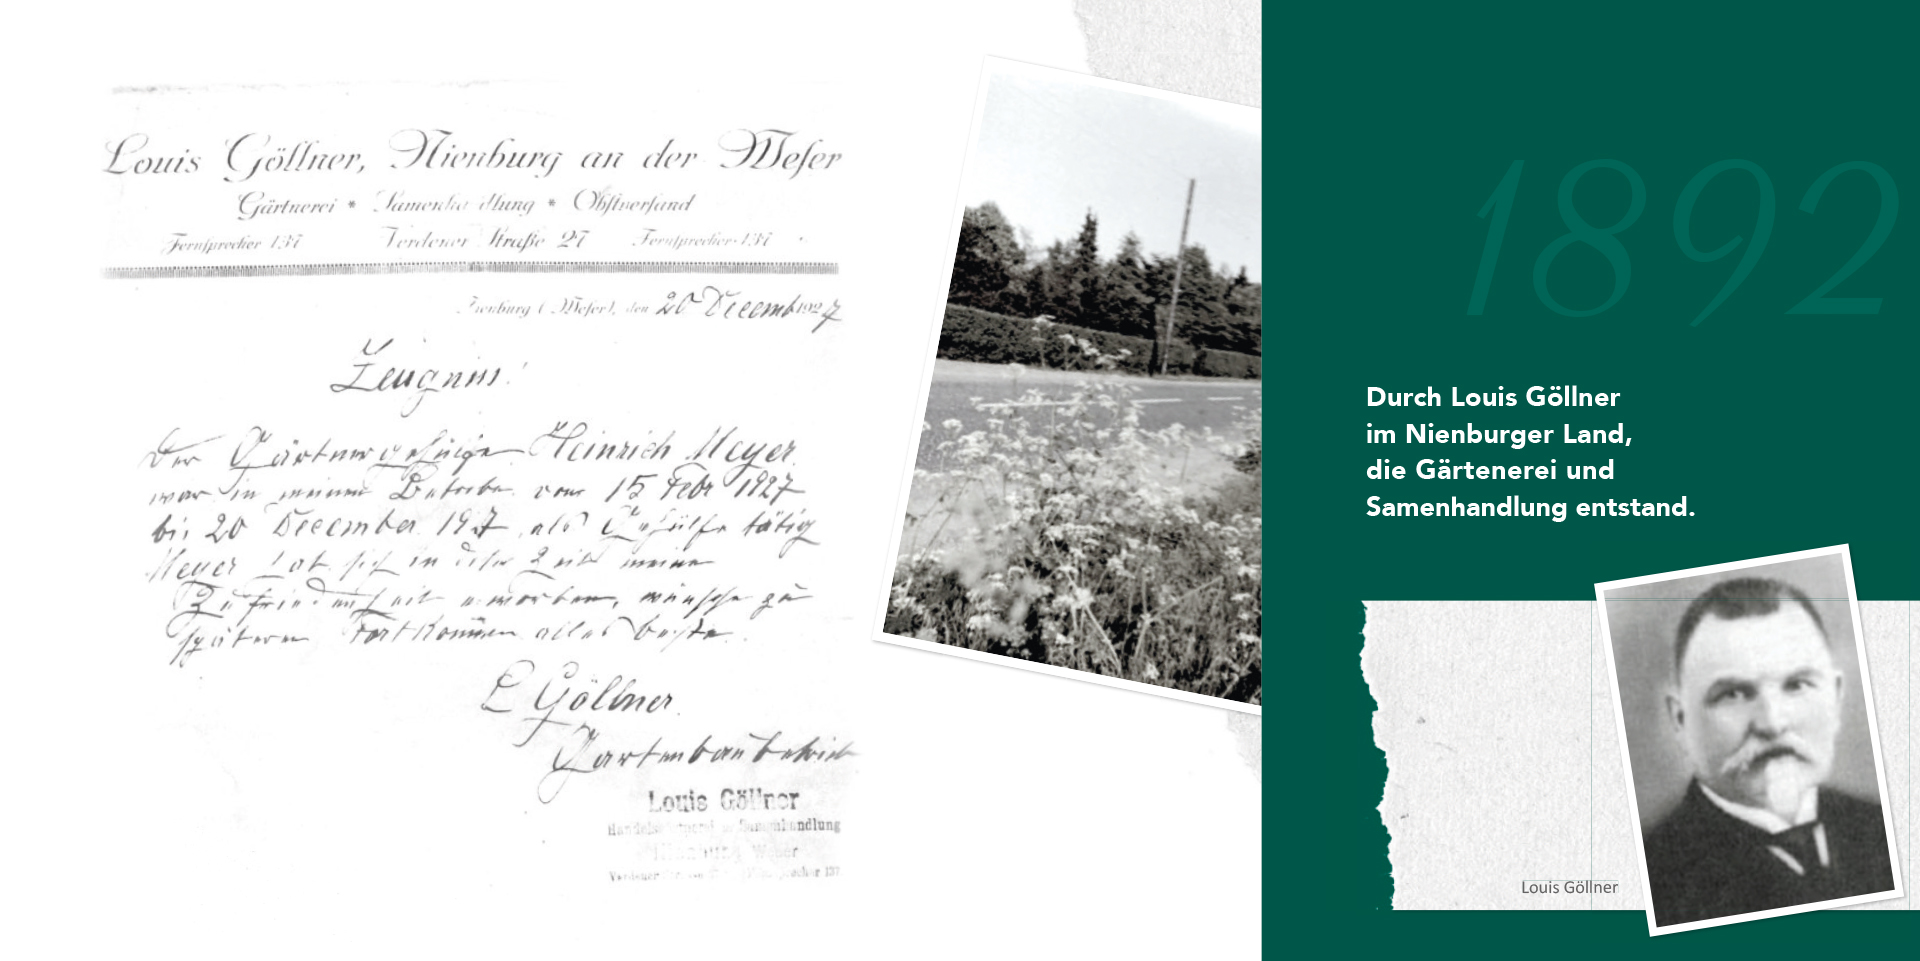 Louis Göllner, Nienburg an der Weser
Gärtnerei * Samenhandlung * Obstversand
Fernsprecher 137 Verdener Straße 27 Fernsprecher 137
Nienburg (Weser), den 20 Decemb 1927
Zeugnis!
Der Gärtnergehülfe Heinrich Meyer
war in meinem Betriebe vom 15 Febr 1927
bis 20 December 1927 als Gehülfe tätig
Meyer hat sich in dieser Zeit meine
Zufriedenheit erworben, wünsche zu
späteren Fortkommen alles beste.
L Göllner
Gartenbaubetrieb
Louis Göllner
Samenhandlung
Nienburg Weser
Verdener 137
1892
Durch Louis Göllner
im Nienburger Land,
die Gärtenerei und
Samenhandlung entstand.
Louis Göllner